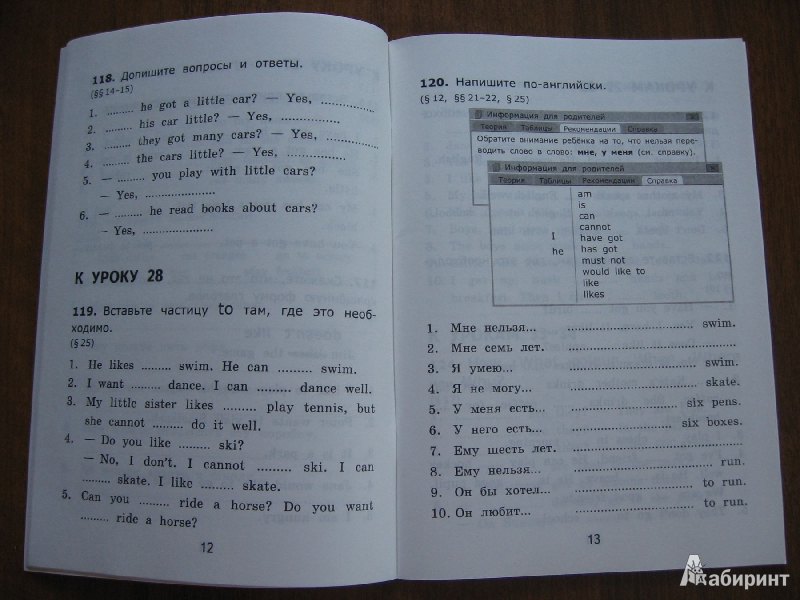 118. Допишите вопросы и ответы.
(§§ 14–15)
1. ......... he got a little car? — Yes, ..............
2. ......... his car little? — Yes, ..................
3. ......... they got many cars? — Yes, .............
4. ......... the cars little? — Yes, ..................
5. — ......... you play with little cars?
— Yes, ..................
6. — ......... he read books about cars?
— Yes, ..................
К УРОКУ 28
119. Вставьте частицу to там, где это необ-
ходимо.
(§ 25)
1. He likes ......... swim. He can ......... swim.
2. I want ......... dance. I can ......... dance well.
3. My little sister likes ......... play tennis, but
she cannot ......... do it well.
4. — Do you like ......... ski?
— No, I don't. I cannot ......... ski. I can
......... skate. I like ......... skate.
5. Can you ......... ride a horse? Do you want
......... ride a horse?
12
120. Напишите по-английски.
(§ 12, §§ 21–22, § 25)
Информация для родителей
Теория Таблицы Рекомендации Справка
Обратите внимание ребёнка на то, что нельзя пере-
водить слово в слово: мне, у меня (см. справку).
Информация для родителей
Теория Таблицы Рекомендации Справка
am
is
can
cannot
I have got
he has got
must not
would like to
like
likes
1. Мне нельзя... .............................. swim.
2. Мне семь лет. ..............................
3. Я умею... .............................. swim.
4. Я не могу... .............................. skate.
5. У меня есть... ......................... six pens.
6. У него есть... ......................... six boxes.
7. Ему шесть лет. ..............................
8. Ему нельзя... .............................. run.
9. Он бы хотел... ......................... to run.
10. Он любит... ......................... to run.
13
Лабиринт